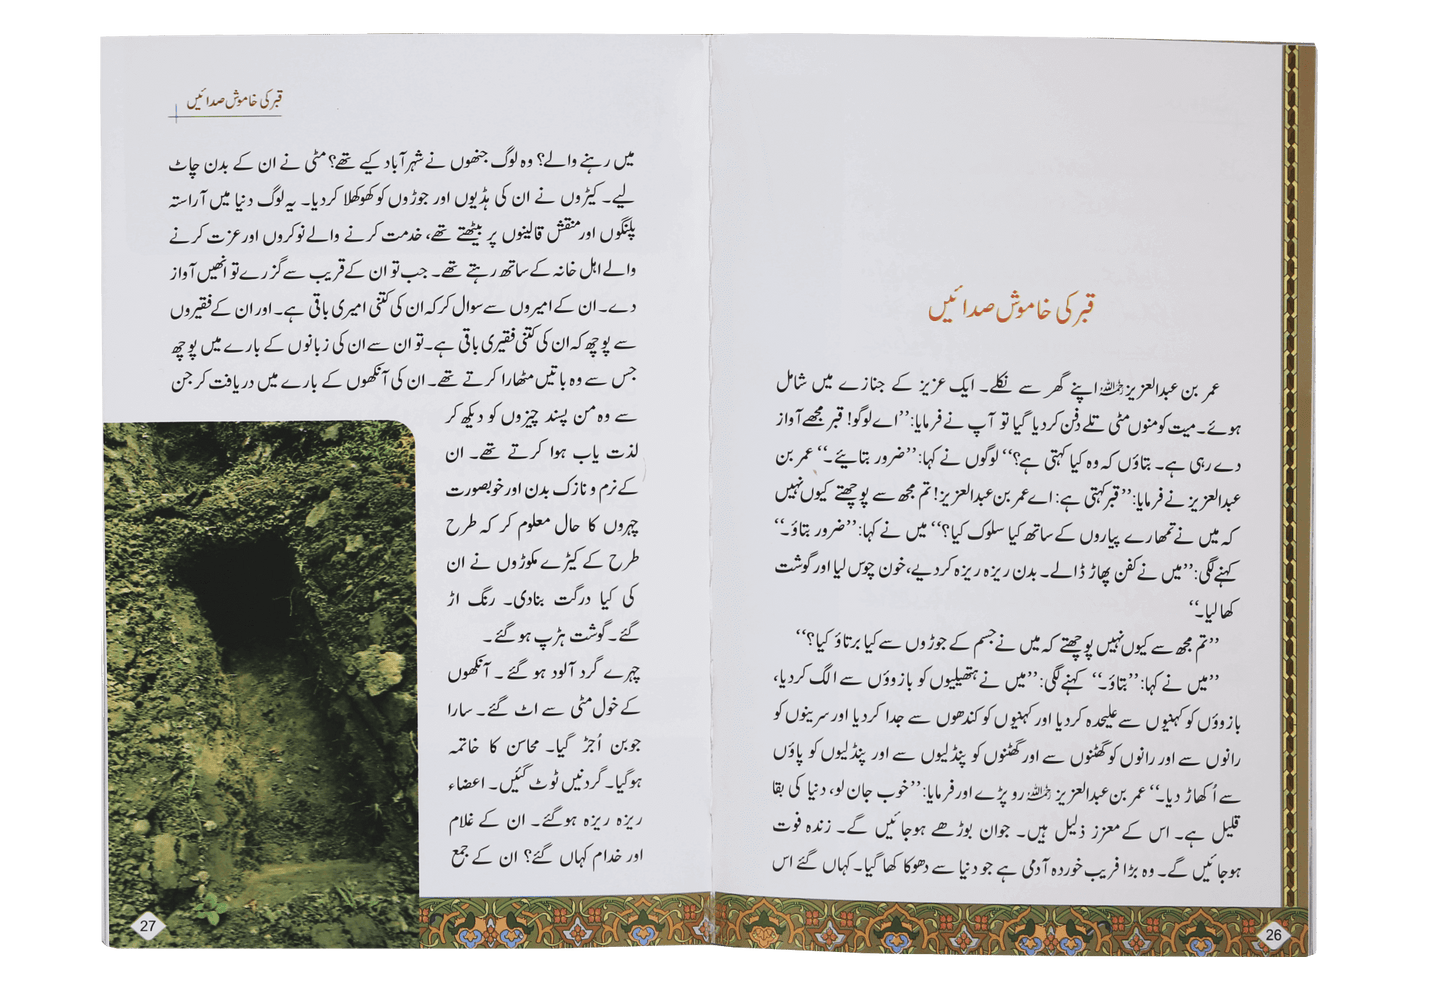 قبر کی خاموش صدائیں
عمر بن عبدالعزیز رحمہ اللہ اپنے گھر سے نکلے۔ ایک عزیز کے جنازے میں شامل
ہوئے۔ میت کو منوں مٹی تلے دفن کردیا گیا تو آپ نے فرمایا: ’’اے لوگو! قبر مجھے آواز
دے رہی ہے۔ بتاؤں کہ وہ کیا کہتی ہے؟‘‘ لوگوں نے کہا: ’’ضرور بتائیے۔‘‘ عمر بن
عبدالعزیز نے فرمایا: ’’قبر کہتی ہے: اے عمر بن عبدالعزیز! تم مجھ سے پوچھتے کیوں نہیں
کہ میں نے تمھارے پیاروں کے ساتھ کیا سلوک کیا؟‘‘ میں نے کہا: ’’ضرور بتاؤ۔‘‘
کہنے لگی: ’’میں نے کفن پھاڑ ڈالے۔ بدن ریزہ ریزہ کردیے، خون چوس لیا اور گوشت
کھا لیا۔‘‘
’’تم مجھ سے کیوں نہیں پوچھتے کہ میں نے جسم کے جوڑوں سے کیا برتاؤ کیا؟‘‘
’’میں نے کہا: ’’بتاؤ۔‘‘ کہنے لگی: ’’میں نے ہتھیلیوں کو بازوؤں سے الگ کردیا،
بازوؤں کو کہنیوں سے علیحدہ کردیا اور کہنیوں کو کندھوں سے جدا کردیا اور سرینوں کو
رانوں سے اور رانوں کو گھٹنوں سے اور گھٹنوں کو پنڈلیوں سے اور پنڈلیوں کو پاؤں
سے اُکھاڑ دیا۔‘‘ عمر بن عبدالعزیز رحمہ اللہ رو پڑے اور فرمایا: ’’خوب جان لو، دنیا کی بقا
قلیل ہے۔ اس کے معزز ذلیل ہیں۔ جوان بوڑھے ہوجائیں گے۔ زندہ فوت
ہوجائیں گے۔ وہ بڑا فریب خوردہ آدمی ہے جو دنیا سے دھوکا کھا گیا۔ کہاں گئے اس
26
قبر کی خاموش صدائیں
میں رہنے والے؟ وہ لوگ جنھوں نے شہر آباد کیے تھے؟ مٹی نے ان کے بدن چاٹ
لیے۔ کیڑوں نے ان کی ہڈیوں اور جوڑوں کو کھوکھلا کردیا۔ یہ لوگ دنیا میں آراستہ
پلنگوں اور منقش قالینوں پر بیٹھتے تھے، خدمت کرنے والے نوکروں اور عزت کرنے
والے اہل خانہ کے ساتھ رہتے تھے۔ جب تو ان کے قریب سے گزرے تو انھیں آواز
دے۔ ان کے امیروں سے سوال کر کہ ان کی کتنی امیری باقی ہے۔ اور ان کے فقیروں
سے پوچھ کہ ان کی کتنی فقیری باقی ہے۔ تو ان سے ان کی زبانوں کے بارے میں پوچھ
جس سے وہ باتیں مٹھارا کرتے تھے۔ ان کی آنکھوں کے بارے میں دریافت کر جن
سے وہ من پسند چیزوں کو دیکھ کر
لذت یاب ہوا کرتے تھے۔ ان
کے نرم و نازک بدن اور خوبصورت
چہروں کا حال معلوم کر کہ طرح
طرح کے کیڑے مکوڑوں نے ان
کی کیا درگت بنادی۔ رنگ اڑ
گئے۔ گوشت ہڑپ ہو گئے۔
چہرے گرد آلود ہو گئے۔ آنکھوں
کے خول مٹی سے اٹ گئے۔ سارا
جوبن اُجڑ گیا۔ محاسن کا خاتمہ
ہوگیا۔ گردنیں ٹوٹ گئیں۔ اعضاء
ریزہ ریزہ ہوگئے۔ ان کے غلام
اور خدام کہاں گئے؟ ان کے جمع
27